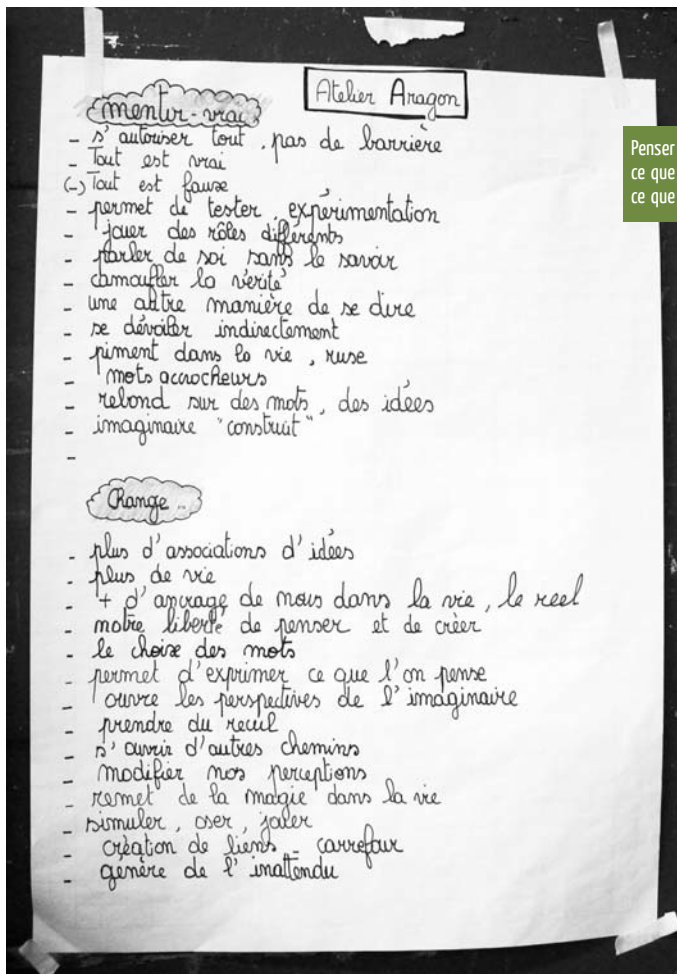 Atelier Aragon
mentir-vrai
- s'autoriser tout, pas de barrière
- Tout est vrai
(-) Tout est fause
- permet de tester, expérimentation
- jouer des rôles différents
- parler de soi sans le savoir
- camoufler la vérité
- une autre manière de se dire
- se dévoiler indirectement
- piment dans la vie, ruse
- mots accrocheurs
- rebond sur des mots, des idées
- imaginaire "construit"
-
Change...
- plus d'associations d'idées
- plus de vie
- + d'ancrage de nous dans la vie, le reel
- notre liberté de penser et de créer
- le choix des mots
- permet d'exprimer ce que l'on pense
- ouvre les perspectives de l'imaginaire
- prendre du recul
- s'ouvrir d'autres chemins
- modifier nos perceptions
- remet de la magie dans la vie
- simuler, oser, jouer
- création de liens - carrefour
- génère de l'inattendu
Penser
ce que
ce que